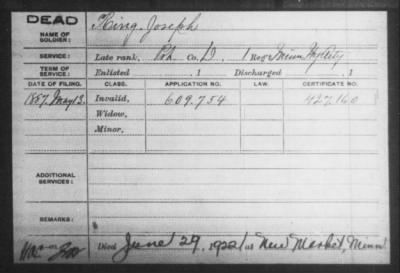 DEAD
NAME OF SOLDIER: King, Joseph
SERVICE: Late rank, Co. D, 1 Reg't Minn Hy Arty
TERM OF SERVICE: Enlisted , 1 Discharged , 1
DATE OF FILING. CLASS. APPLICATION NO. LAW. CERTIFICATE NO.
1887, May 13. Invalid, 609.754 427.160
Widow,
Minor,
ADDITIONAL SERVICES:
REMARKS:
Died June 29, 1922, at New Market, Minn